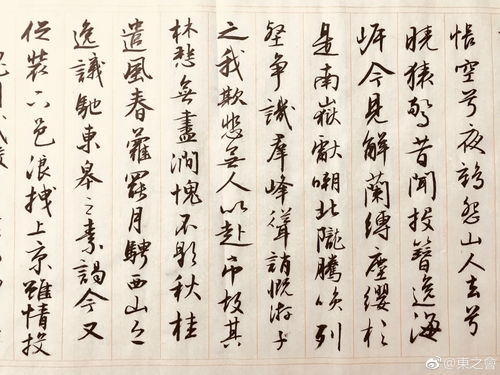 帳空兮夜鶴怨山人去兮
曉猿驚昔聞投簪逸海
岸今見解蘭縛塵纓於
是南嶽獻嘲北隴騰笑列
壑争譏羣峰聳誚慨游子
之我欺悲無人以赴吊故其
林慙無盡澗愧不歇秋桂
遣風春蘿罷月騁西山之
逸議馳東皋之素謁今又
促装下邑浪拽上京雖情投
@東之會